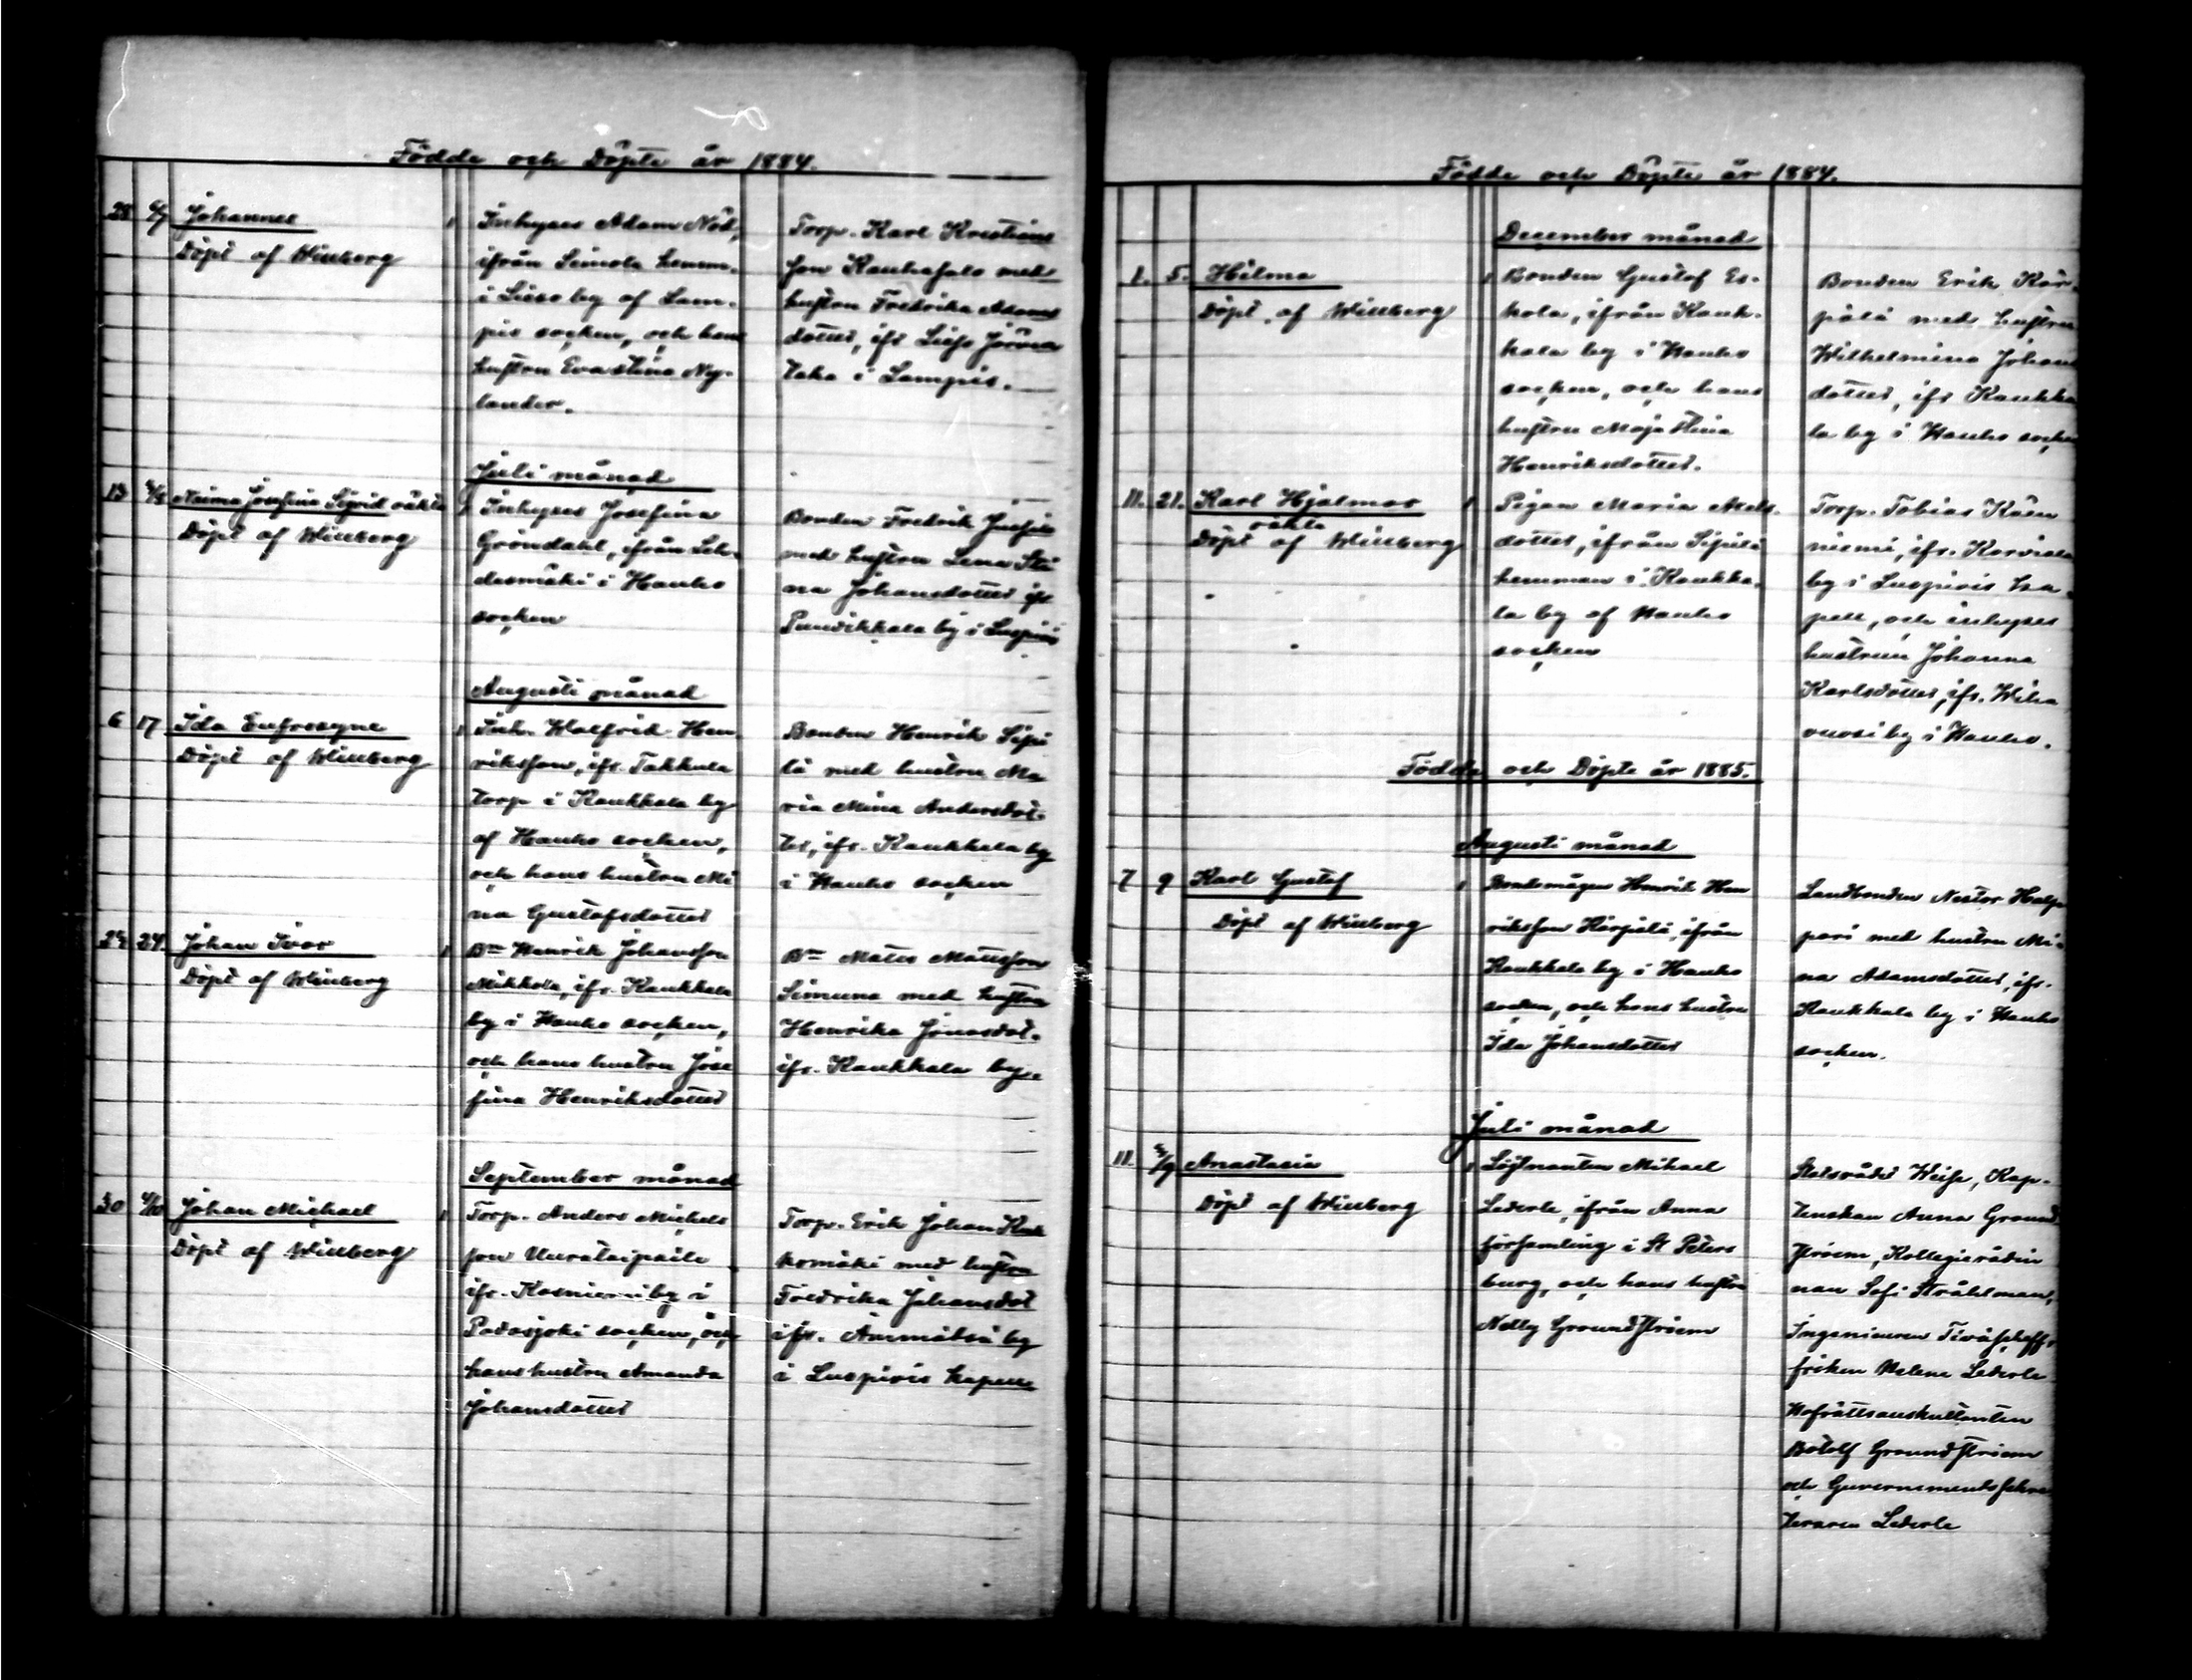 Födde och Döpte år 1884.
28 6/7 Johannes
Döpt af Winberg
1 Inhyses Adam Nöd,
ifrån Simola hemm.
i Lieso by af Lam-
pis socken, och hans
hustru Eva Stina Ny-
lander.
Torp. Karl Kristians
son Kauhasalo med
hustru Fredrika Adams
dotter, ifr Lieso
i Lampis.
Juli månad
13 Naima Josefina Sigrid oäkta
Döpt af Winberg
Inhyses Josefina
Gröndahl, ifrån Leh-
desmäki i Hauho
socken
Bonden Fredrik Jussila
med hustru Lena Sti
na Johansdotter ifr
by i Luopiois
Augusti månad
6 17 Ida Eufrosyne
Döpt af Winberg
1 Inh. Walfrid Hen
riksson, ifr. Takkula
torp i Kaukkala by
af Hauho socken,
och hans hustru Mi
na Gustafsdotter
Bonden Henrik Sipi
lä med hustru Ma
ria Mina Andersdot-
ter, ifr. Kaukkala by
i Hauho socken
24 24. Johan Ivar
Döpt af Winberg
1 Bn Henrik Johansson
Mikkola, ifr. Kaukkala
by i Hauho socken,
och hans hustru Jose
fina Henriksdotter
Bn Matts Mattsson
Simuna med hustru
Henrika Jonasdot.
ifr. Kaukkala by.
September månad
30 4/10 Johan Michael
Döpt af Winberg
1 Torp. Anders Michels
son
ifr. Kosniemi by i
Padasjoki socken, och
hans hustru Amanda
Johansdotter
Torp. Erik Johan
komäki med hustru
Fredrika Johansdot
ifr. Ämmätsä by
i Luopiois kapell
Födde och Döpte år 1884.
December månad
1. 5. Hilma
Döpt af Winberg
1 Bonden Gustaf Es-
kola, ifrån Kauk-
kala by i Hauho
socken, och hans
hustru Maja Stina
Henriksdotter.
Bonden Erik Kär-
pälä med hustru
Wilhelmina Johans
dotter, ifr Kaukka
la by i Hauho socken
11. 21. Karl Hjalmar
oäkta
Döpt af Winberg
1 Pigan Maria Axels-
dotter, ifrån Sipilä
hemman i Kaukka-
la by af Hauho
socken
Torp. Tobias
niemi, ifr. Korviala
by i Luopiois ka-
pell, och inhyses
hustrun Johanna
Karlsdotter, ifr. Wiha
vuosi by i Hauho.
Födde och Döpte år 1885.
Augusti månad
7 9 Karl Gustaf
Döpt af Winberg
1 Bondemågen Henrik Hen
riksson Kärpälä, ifrån
Kaukkala by i Hauho
socken, och hans hustru
Ida Johansdotter
Landbonden Nestor
pari med hustru Mi-
na Adamsdotter, ifr.
Kaukkala by i Hauho
socken.
Juli månad
11. Anastasia
Döpt af Winberg
1 Löjtnanten Mikael
Lederle, ifrån Anna
församling i St Peters
burg, och hans hustru
Nelly Groundstroem
Statsrådet Weise, Kap-
tenskan Anna Ground
stroem, Kollegierådin
nan Sofi Stråhlman,
Ingenieuren
fröken Helene Lederle
Hofrättsauskultanten
Botolf Groundstroem
och Guvernementssekre
teraren Lederle